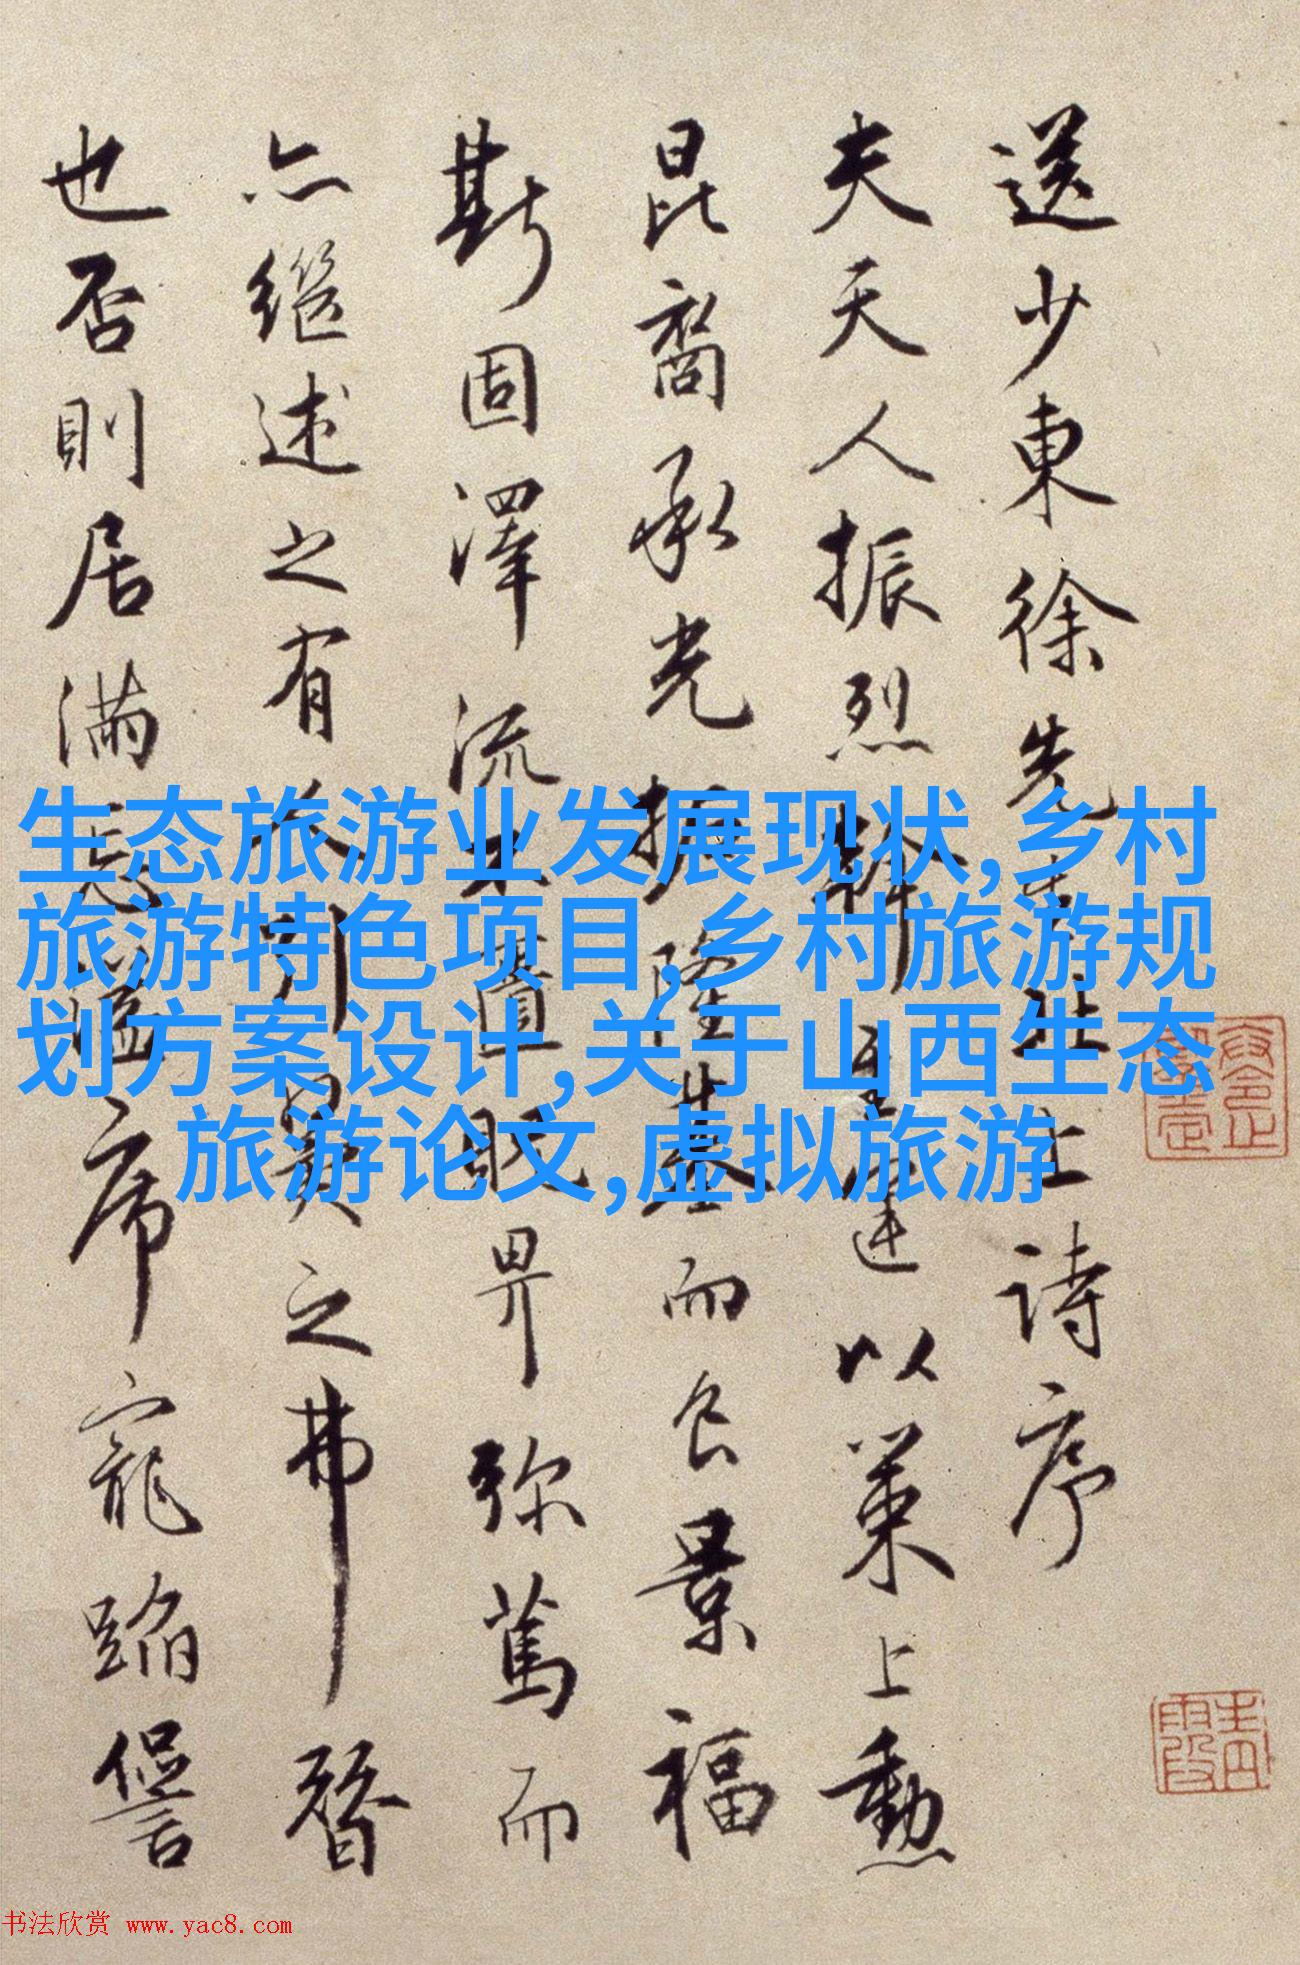 送少東徐先生北上詩序
夫天人振烈以策上勳
昆裔承光隆基而景福
斯固澤流不匱貺畀弥篤而
亦继述之有引翼之弗替
也否則居滿忘溢席寵蹈
生态旅游业发展现状,乡村
旅游特色项目,乡村旅游规
划方案设计,关于山西生态
旅游论文,虚拟旅游
书法欣赏 www.yac8.com